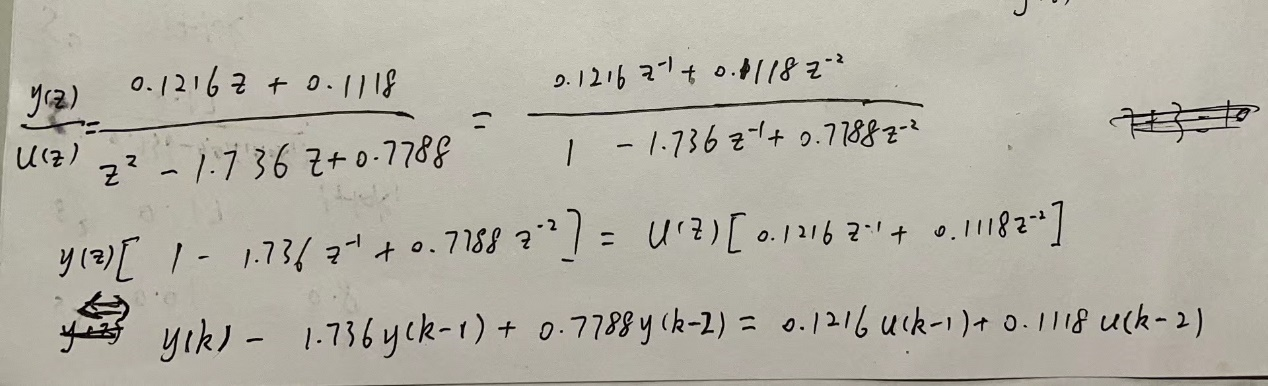 y(z)/U(z) = (0.1216z + 0.1118)/(z² - 1.736z + 0.7788) = (0.1216z⁻¹ + 0.1118z⁻²)/(1 - 1.736z⁻¹ + 0.7788z⁻²)
y(z)[1 - 1.736z⁻¹ + 0.7788z⁻²] = U(z)[0.1216z⁻¹ + 0.1118z⁻²]
y(k) - 1.736y(k-1) + 0.7788y(k-2) = 0.1216u(k-1) + 0.1118u(k-2)